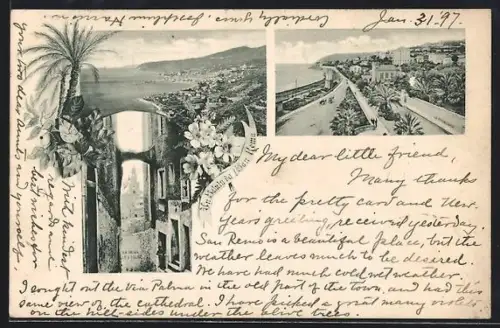 Jan. 31. '97.
My dear little friend,
Many thanks
for the pretty card and New-
Years greeting, received yesterday.
San Remo is a beautiful place, but the
weather leaves much to be desired.
We have had much cold wet weather.
I sought out the Via Palma in the old part of the town, and had this
same view of the cathedral. I have picked a great many violets
on the hill-sides under the olive trees.
With kindest
regards and
best wishes for
your two dear Aunts and yourself,
Cordially yours, Josephine